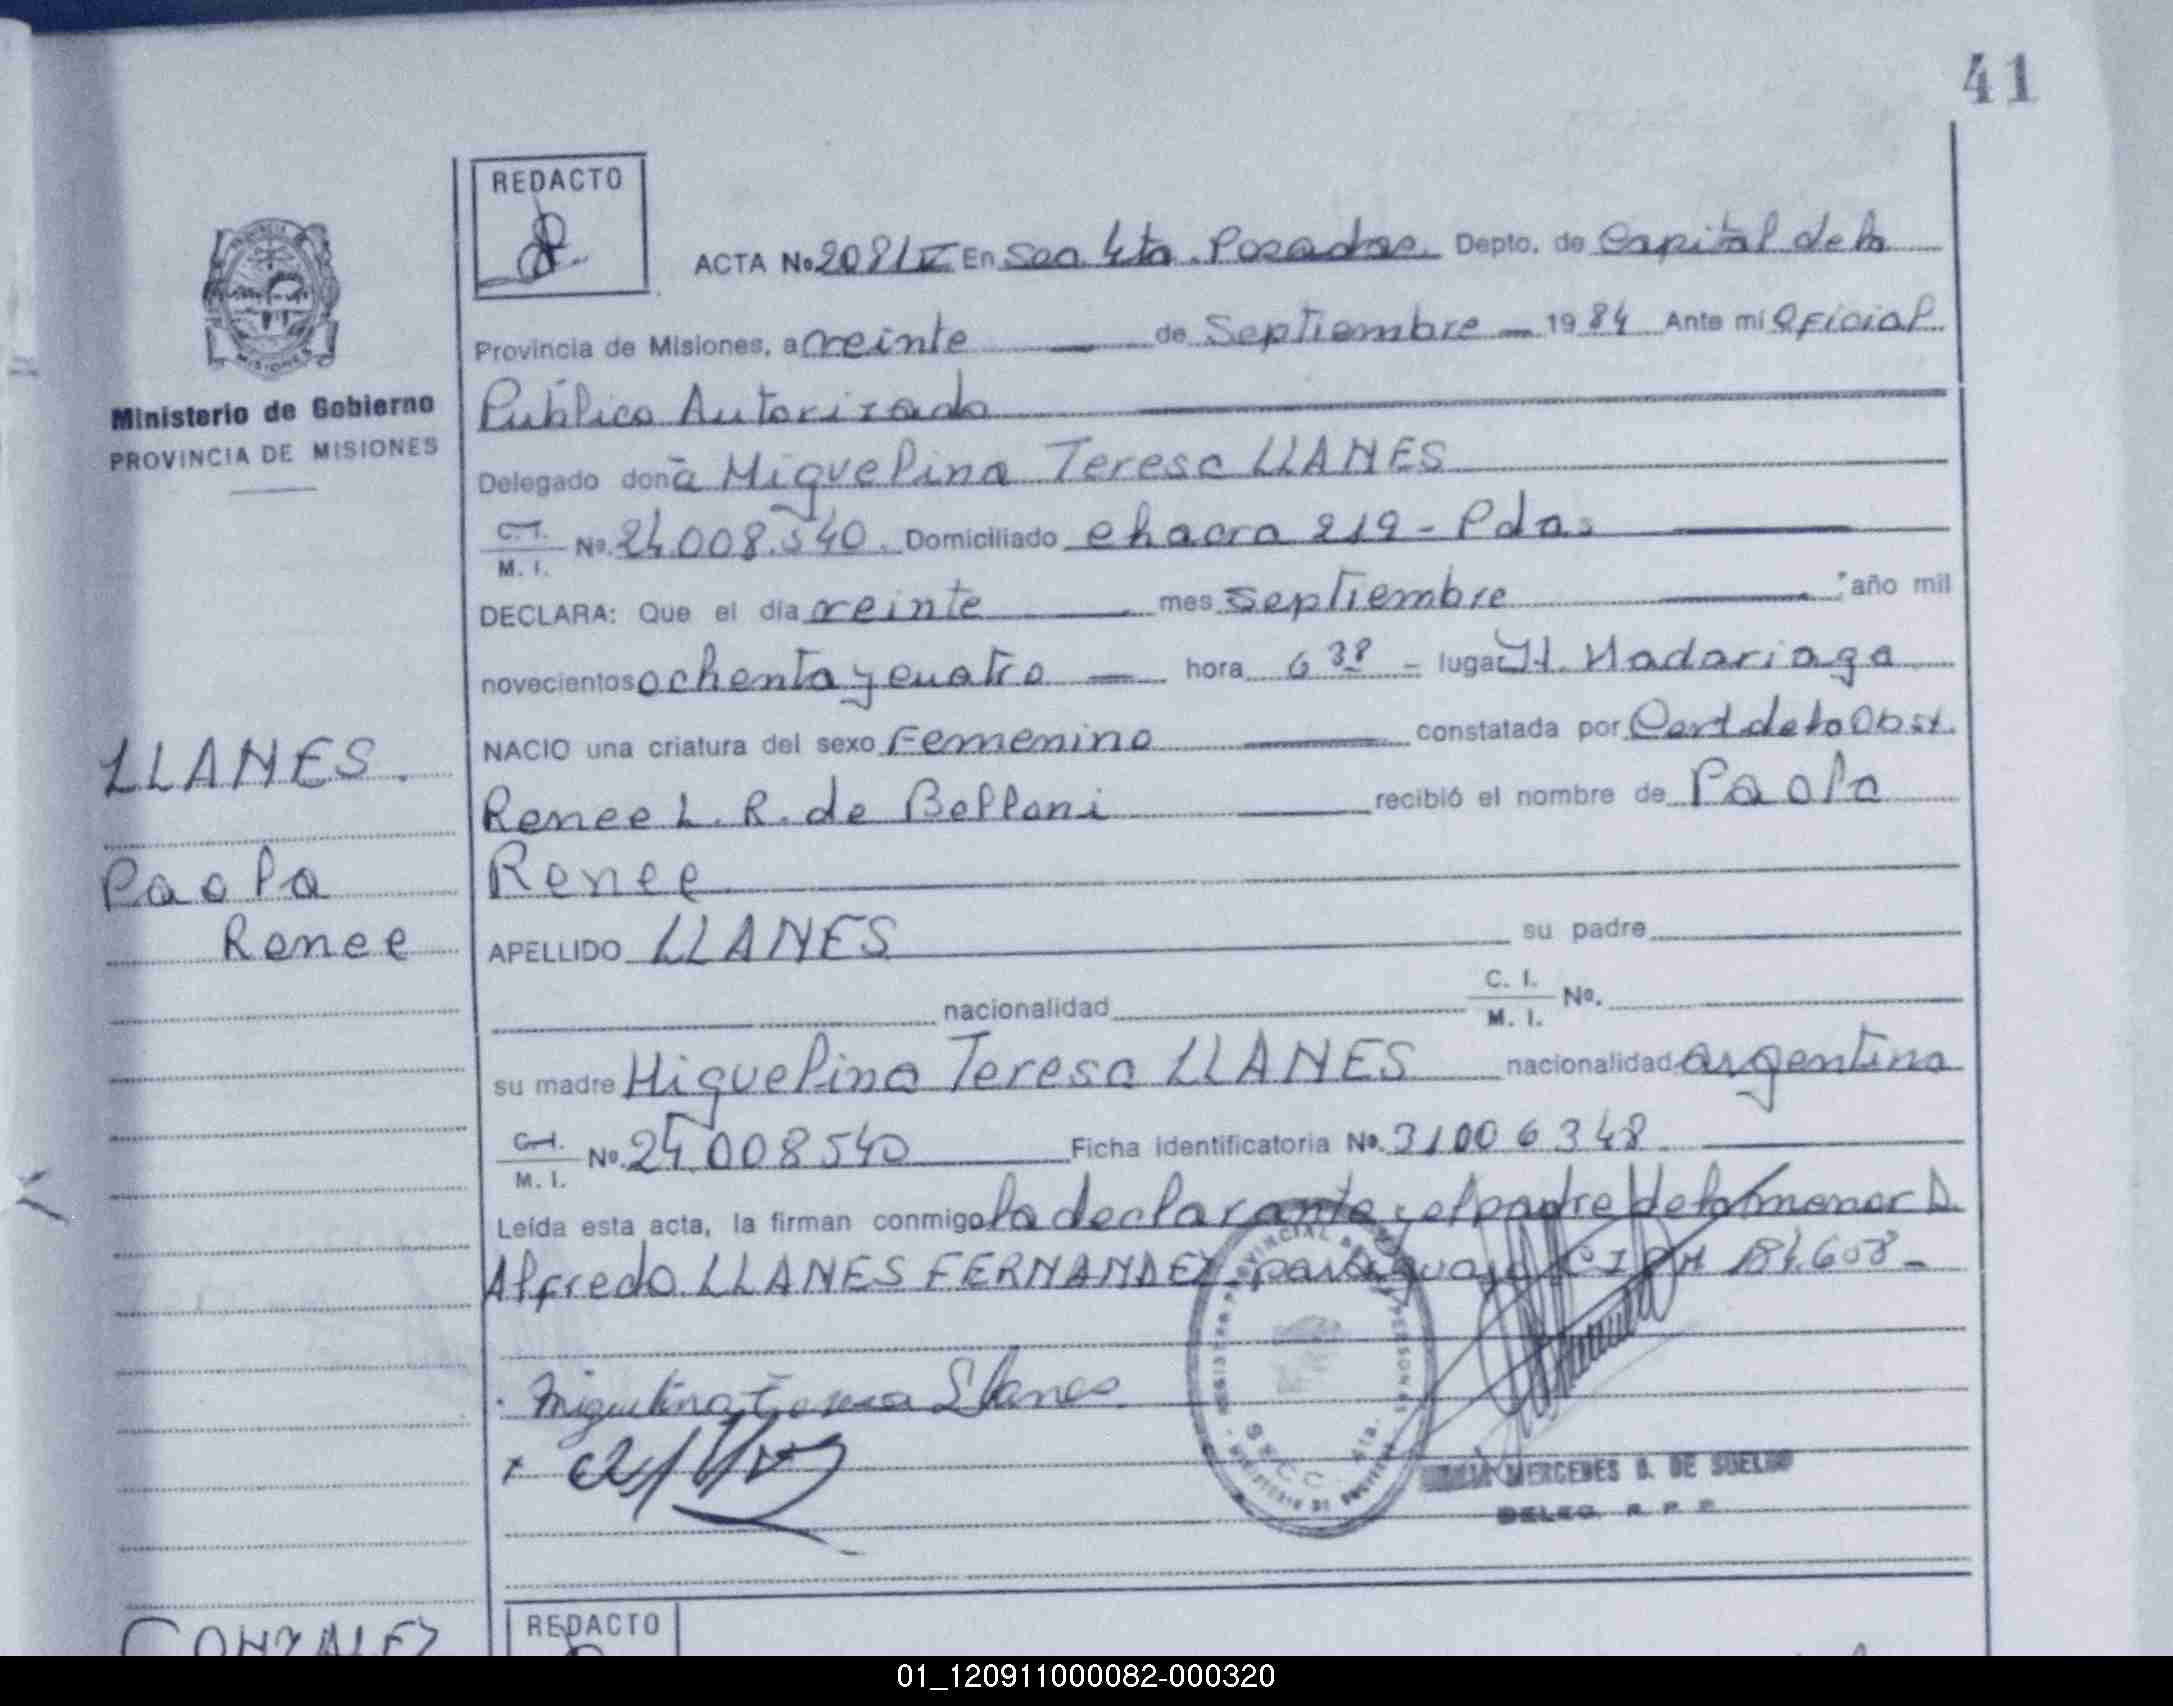 41
REDACTO
ACTA No 2081 V En Secc 4ta. Posadas. Depto. de Capital de la
Provincia de Misiones, a veinte de Septiembre 1984 Ante mí Oficial
Público Autorizado
Ministerio de Gobierno
PROVINCIA DE MISIONES
Delegado doña Miguelina Teresa LLANES
C.I. M. I. No. 24.008.540. Domiciliado chacra 219 - Pdas
DECLARA: Que el día veinte mes septiembre año mil
novecientos ochenta y cuatro hora 6 38 lugar H. Madariaga
NACIO una criatura del sexo Femenino constatada por Cert de la Obst.
Renee L. R. de Belloni recibió el nombre de Paola
Renee
LLANES.
Paola
Renee
APELLIDO LLANES su padre
nacionalidad C. I. M. I. No.
su madre Miguelina Teresa LLANES nacionalidad argentina
C.I. M. I. No. 24.008540 Ficha identificatoria No. 31006348
Leída esta acta, la firman conmigo la declarante y el padre de la menor D.
Alfredo LLANES FERNANDEZ paraguayo C I 184.608 -
Miguelina Teresa Llanes
MERCEDES D. DE SUELDO
DELEG. R. P. P.
GONZALEZ
REDACTO
01_120911000082-000320